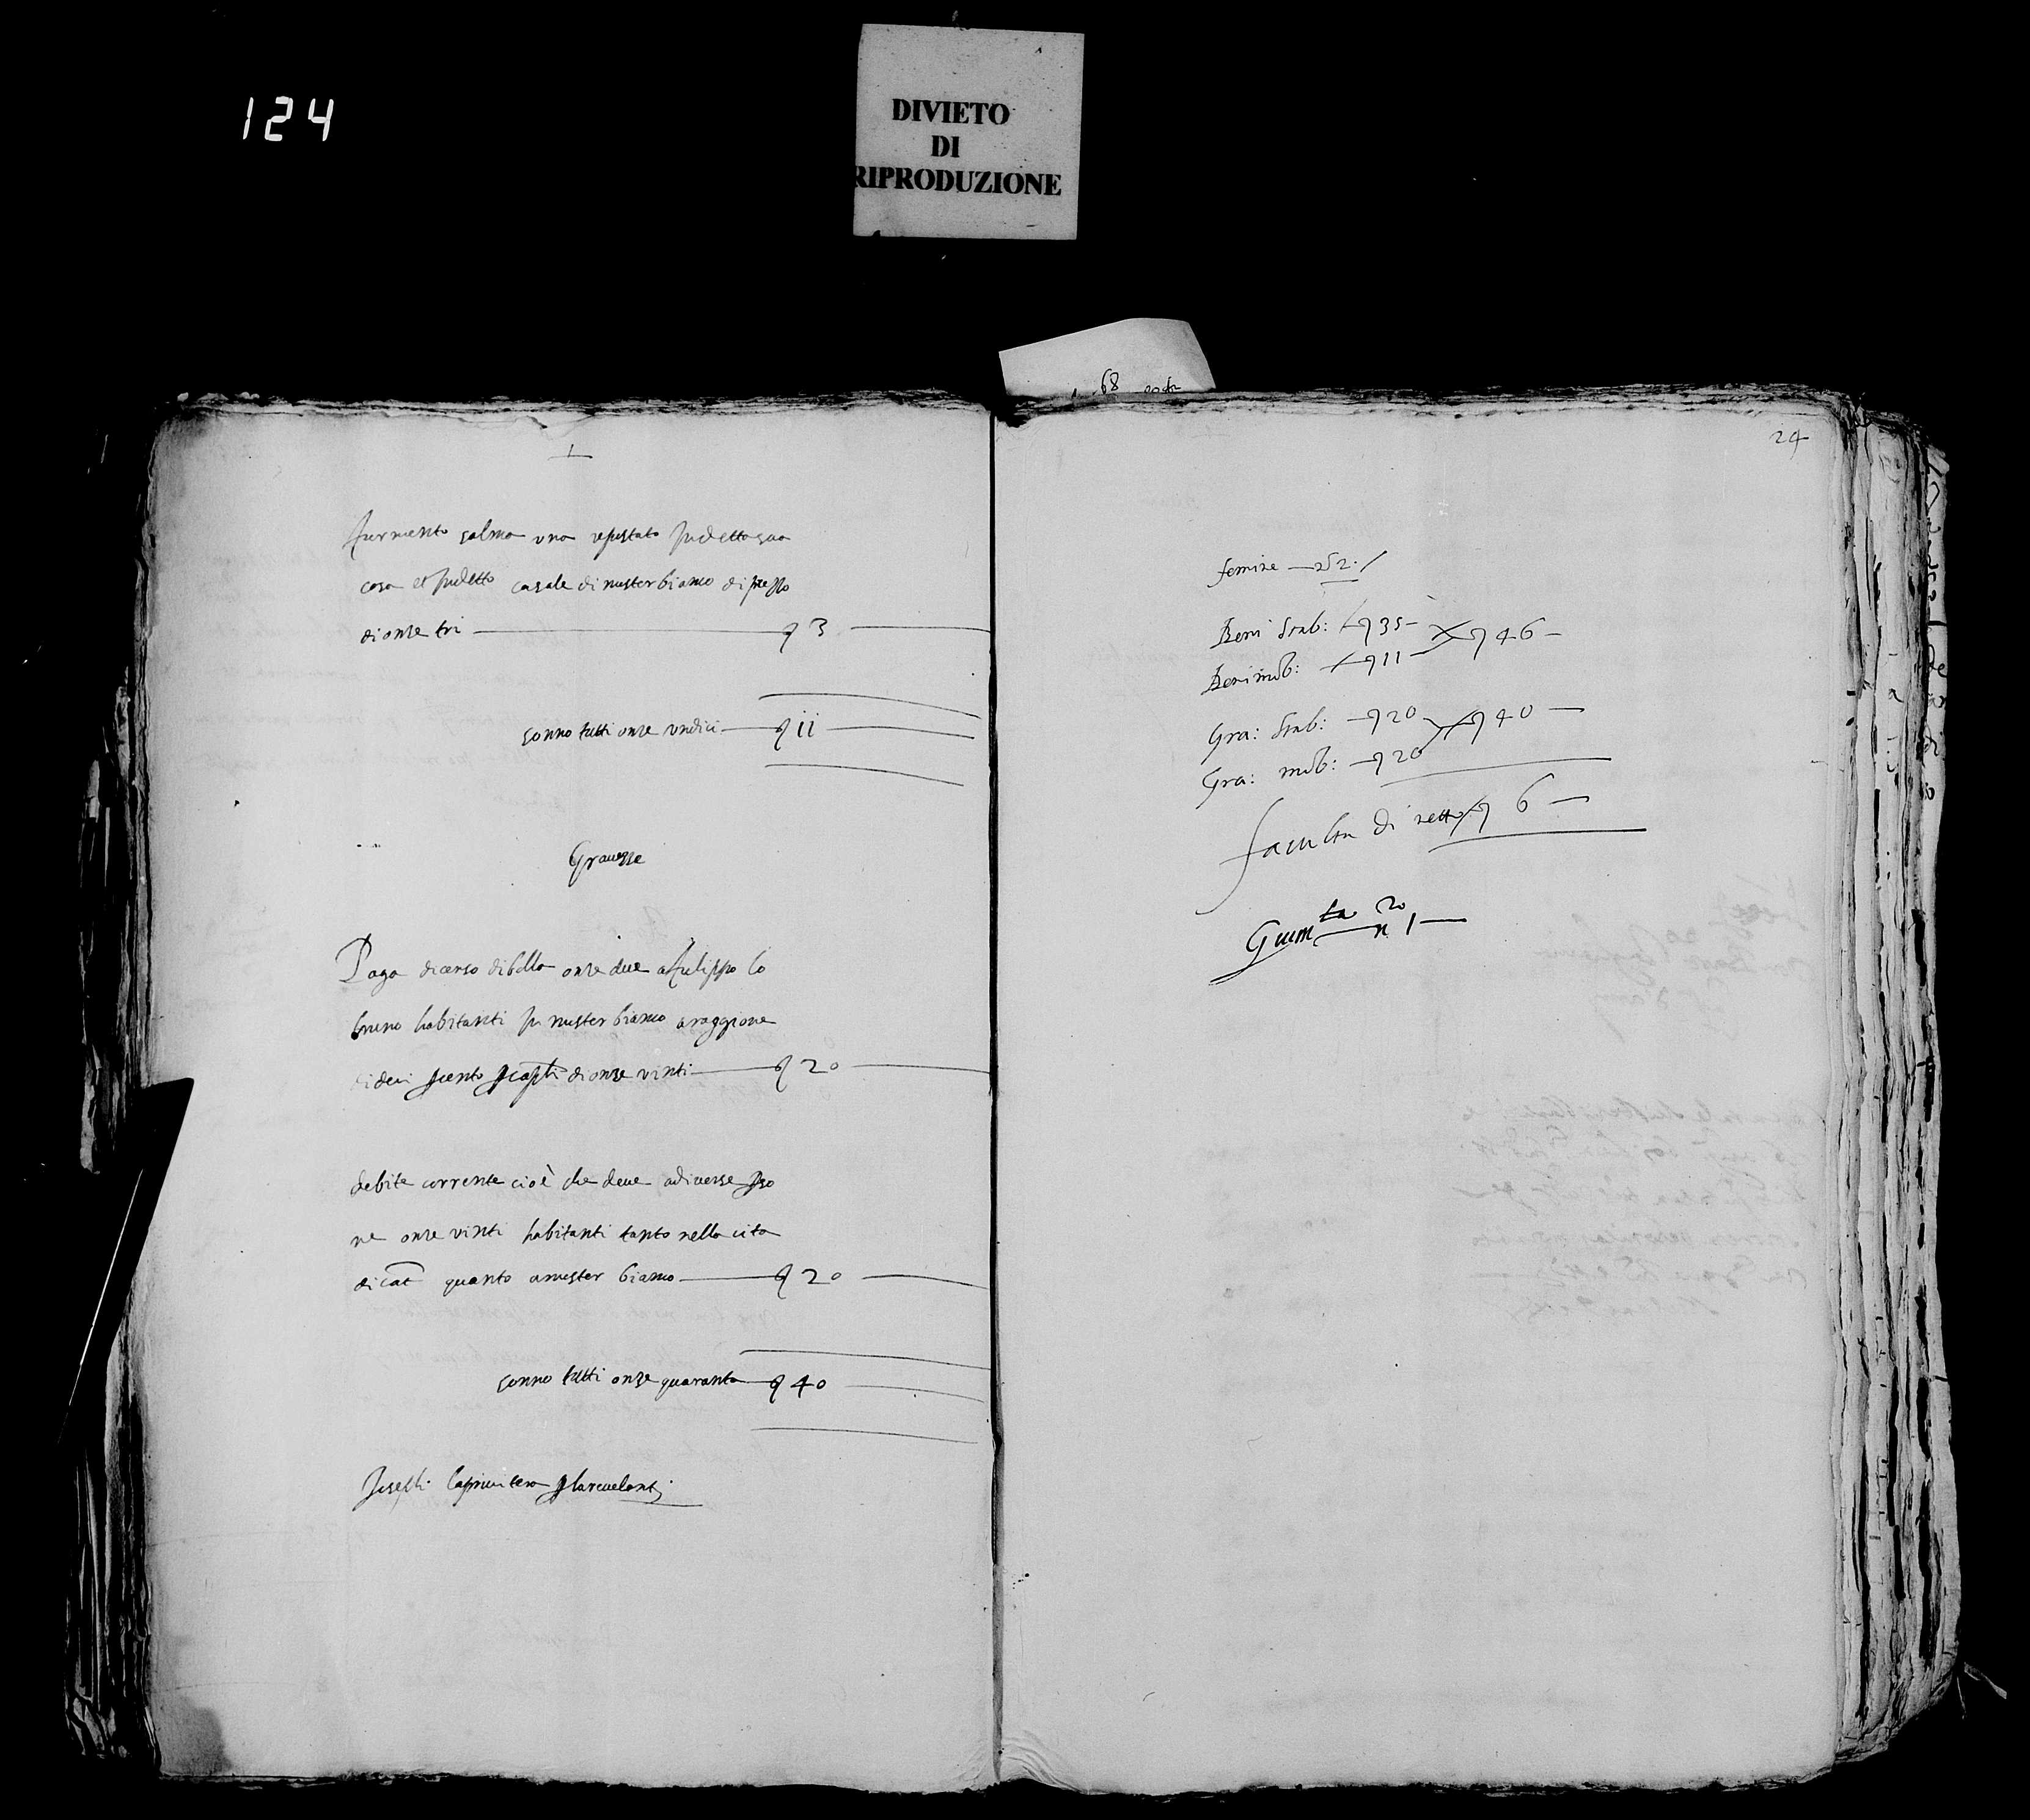 124
DIVIETO
DI
RIPRODUZIONE
68
furmento salma una repustato in detto sua
casa et in detto casale di musterbianco di prezzo
di onze tri 3
sonno tutti onze undici 11
Gravezze
Paga di censo di bolla onze due a filippo lo
bruno habitanti in musterbianco a raggione
di deci per cento di onze vinti 20
debite corrente cioè che deve a diverse perso
ne onze vinti habitanti tanto nella cità
di cat quanto a muster bianco 20
sonno tutti onze quaranta 40
Joseph
24
femine 2
Beni stab: 35 46
Beni mob: 11
Gra: stab: 20 40
Gra: mob: 20
facultà di netto 6